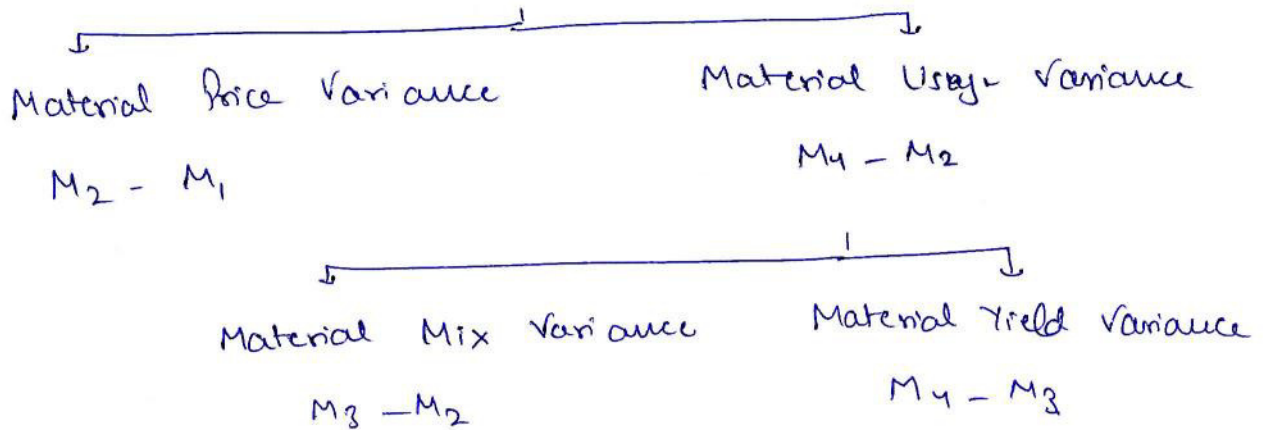 Material Price Variance Material Usage Variance
M2 - M1 M4 - M2
Material Mix Variance Material Yield Variance
M3 - M2 M4 - M3